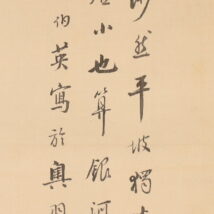 然平坡獨
小也算銀河
伯英寫於奧